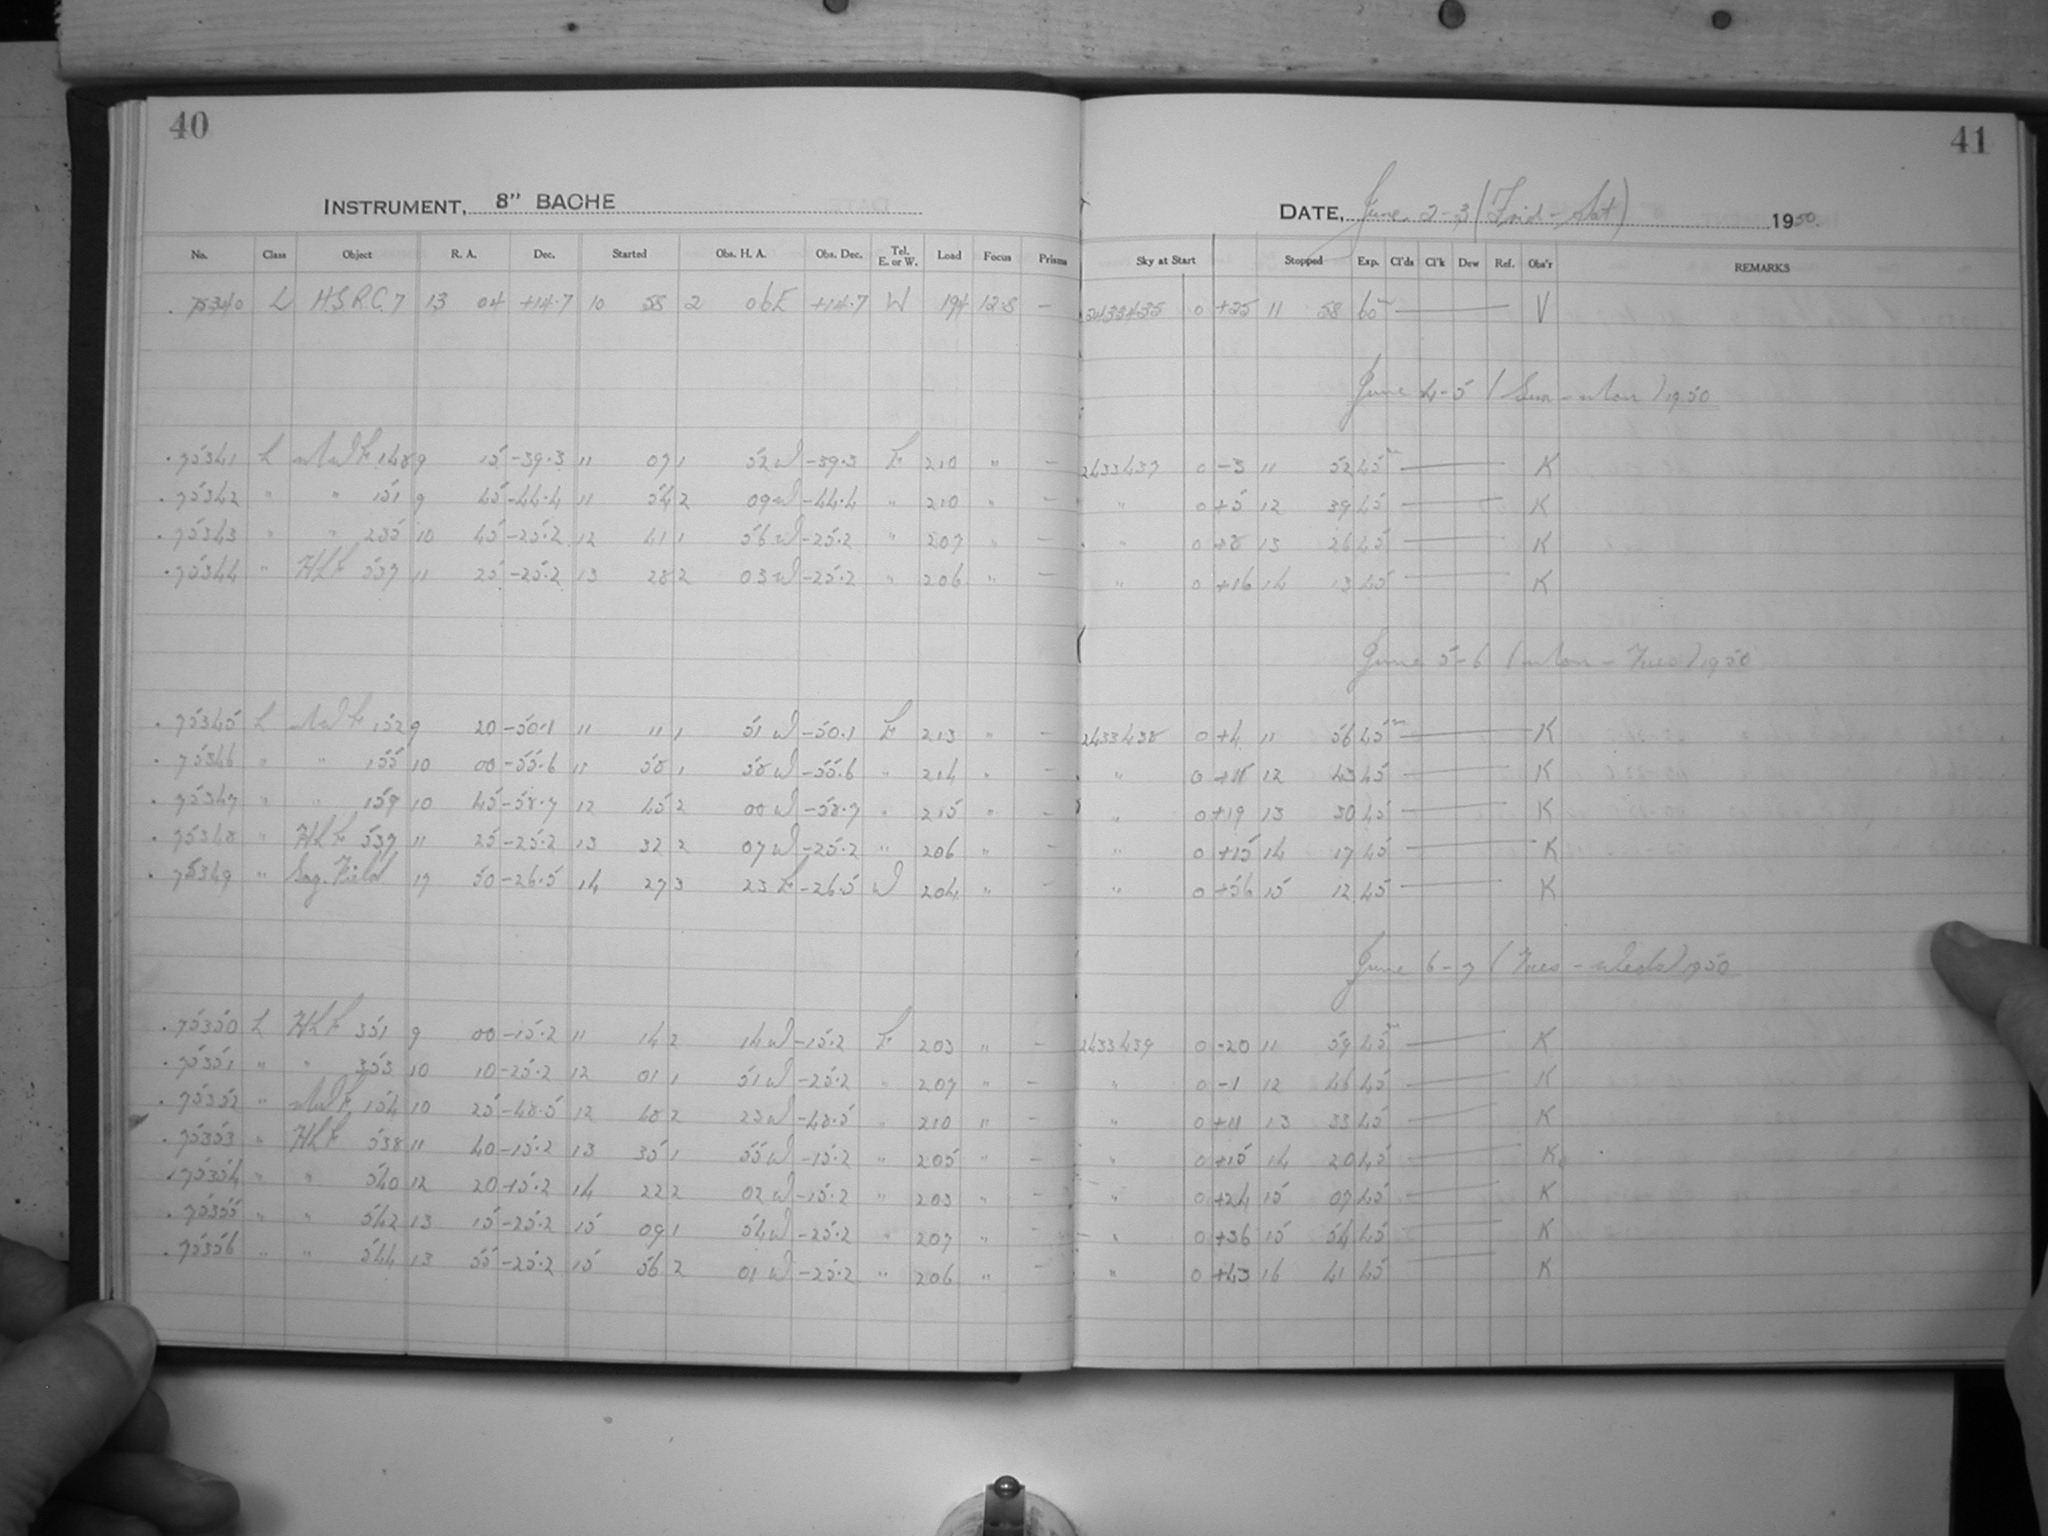 40
INSTRUMENT, 8" BACHE
No. Class Object R. A. Dec. Started Obs. H. A. Obs. Dec. Tel. E. or W. Load Focus Prisms
75340 L H.S.R.C. 7 13 04 +14.7 10 58 2 06 E +14.7 W 194 12.8 –
75341 L MWF 148 9 15 -39.3 11 07 1 52 W -39.3 E 210 " –
75342 " " 151 9 45 -44.4 11 54 2 09 W -44.4 " 210 " –
75343 " " 235 10 45 -25.2 12 41 1 56 W -25.2 " 207 " –
75344 " HLF 537 11 25 -25.2 13 28 2 03 W -25.2 " 206 " –
75345 L MWF 152 9 20 -50.1 11 11 1 51 W -50.1 E 213 " –
75346 " " 155 10 00 -55.6 11 58 1 58 W -55.6 " 214 " –
75347 " " 159 10 45 -58.7 12 45 2 00 W -58.7 " 215 " –
75348 " HLF 537 11 25 -25.2 13 32 2 07 W -25.2 " 206 " –
75349 " Sag. Field 17 50 -26.5 14 27 3 23 E -26.5 W 204 " –
75350 L HLF 351 9 00 -15.2 11 14 2 14 W -15.2 E 203 " –
75351 " " 353 10 10 -25.2 12 01 1 51 W -25.2 " 207 " –
75352 " MWF 154 10 25 -48.5 12 48 2 23 W -48.5 " 210 " –
75353 " HLF 538 11 40 -15.2 13 35 1 55 W -15.2 " 205 " –
75354 " " 540 12 20 -15.2 14 22 2 02 W -15.2 " 203 " –
75355 " " 542 13 15 -25.2 15 09 1 54 W -25.2 " 207 " –
75356 " " 544 13 55 -25.2 15 56 2 01 W -25.2 " 206 " –
41
DATE, June 2-3 (Frid - Sat) 1950
Sky at Start Stopped Exp. Cl'ds Cl'k Dew Ref. Obs'r REMARKS
2433435 0 +25 11 58 60 V
June 4-5 (Sun - Mon) 1950
2433437 0 -3 11 52 45 K
" 0 +5 12 39 45 K
" 0 +8 13 26 45 K
" 0 +16 14 13 45 K
June 5-6 (Mon - Tues) 1950
2433438 0 +4 11 56 45 K
" 0 12 43 45 K
" 0 +19 13 30 45 K
" 0 +15 14 17 45 K
" 0 +56 15 12 45 K
June 6-7 (Tues - Weds) 1950
2433439 0 -20 11 59 45 K
" 0 -1 12 46 45 K
" 0 +11 13 33 45 K
" 0 +15 14 20 45 K
" 0 +24 15 07 45 K
" 0 +36 15 54 45 K
" 0 +43 16 41 45 K